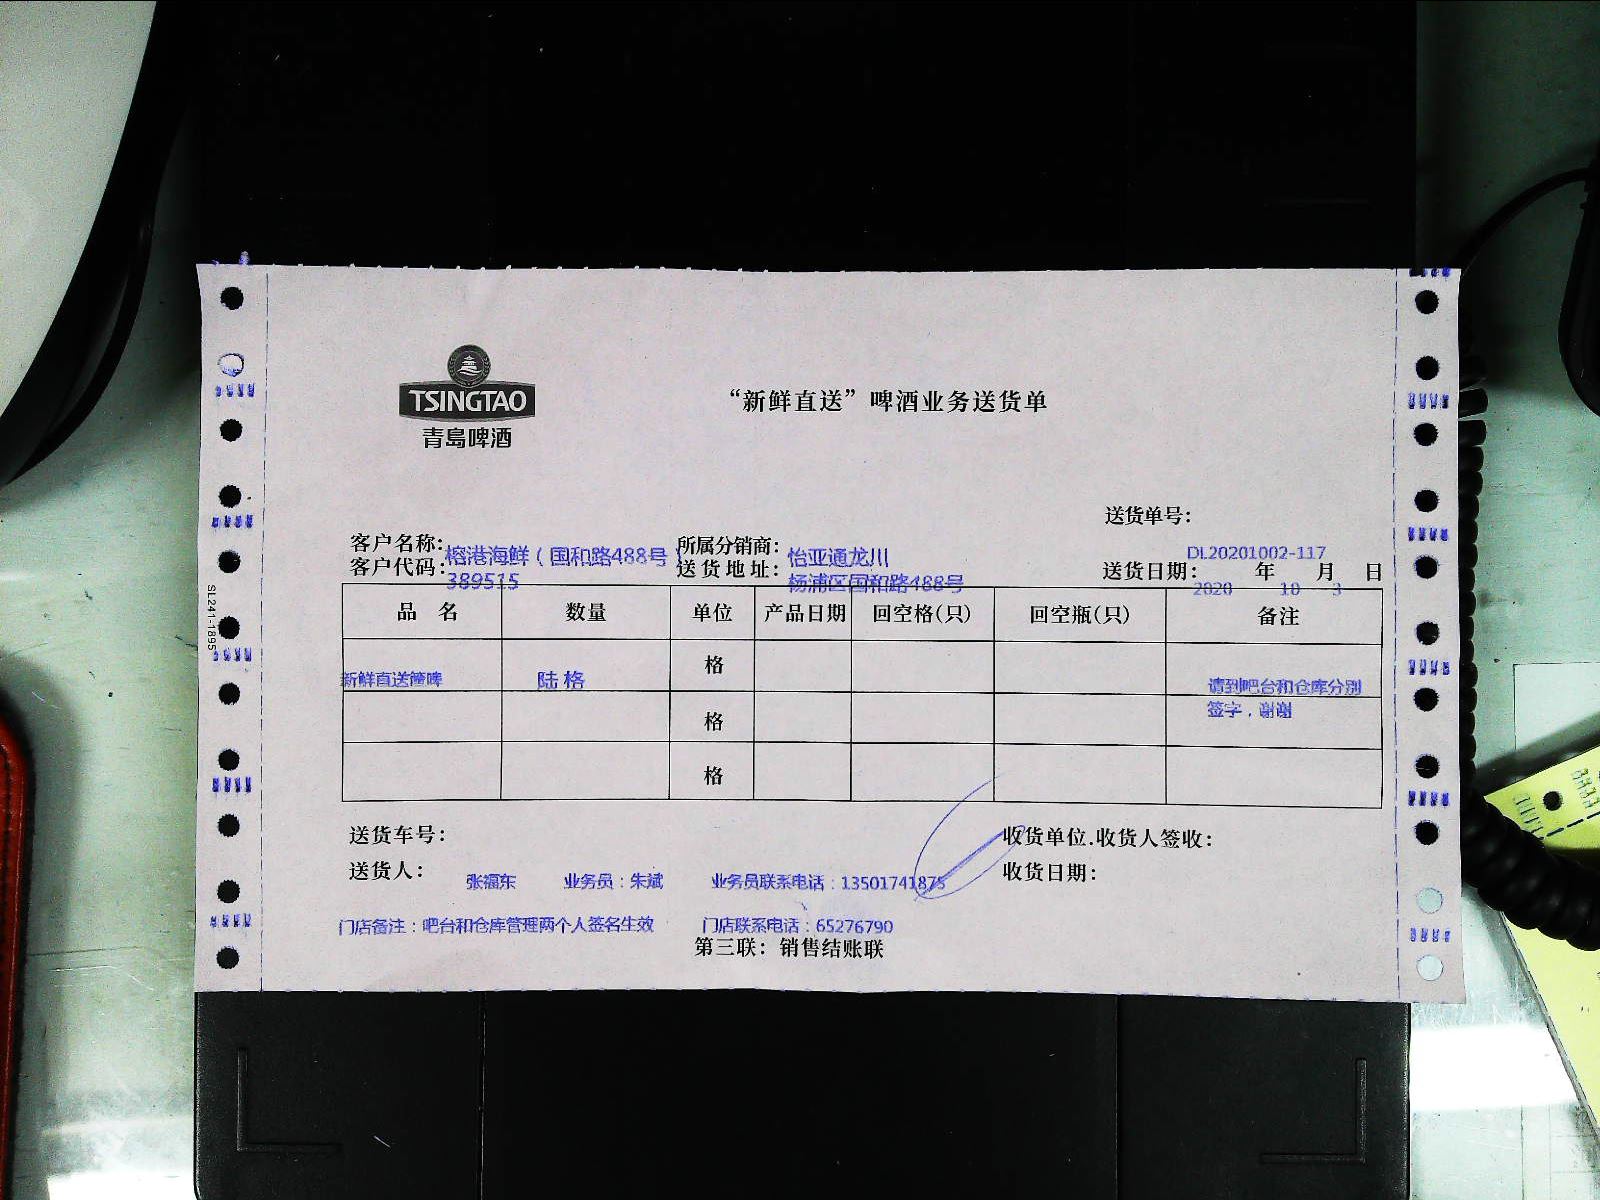 TSINGTAO
青島啤酒
“新鲜直送”啤酒业务送货单
送货单号：
DL20201002-117
客户名称： 榕港海鲜（国和路488号） 所属分销商： 怡亚通龙川
客户代码： 389515 送货地址： 杨浦区国和路488号 送货日期： 2020 年 10 月 3 日
品 名 数量 单位 产品日期 回空格(只) 回空瓶(只) 备注
新鲜直送箱啤 陆格 格 请到吧台和仓库分别
签字，谢谢
格
格
送货车号： 收货单位.收货人签收：
送货人： 张福东 业务员：朱斌 业务员联系电话：13501741875 收货日期：
门店备注：吧台和仓库管理两个人签名生效 门店联系电话：65276790
第三联：销售结账联
SL241-1895